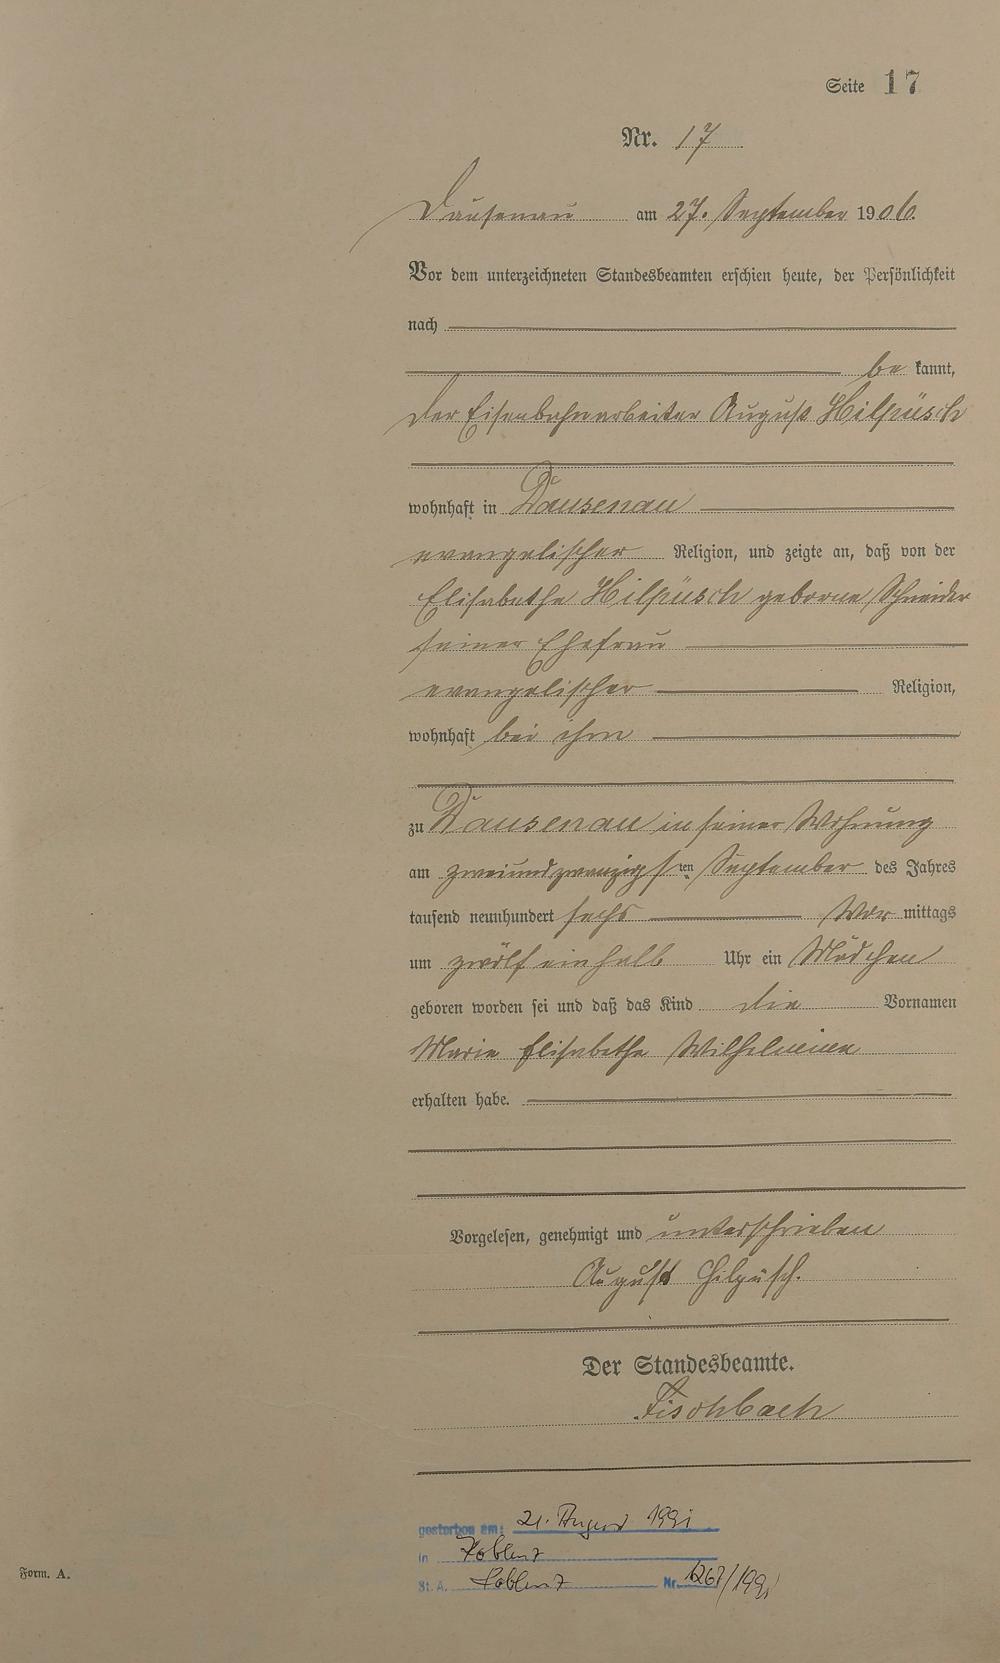 Seite 17
Nr. 17
Dausenau am 27. September 1906.
Vor dem unterzeichneten Standesbeamten erschien heute, der Persönlichkeit
nach
be kannt,
der Eisenbahnarbeiter August Hilpüsch
wohnhaft in Dausenau
evangelischer Religion, und zeigte an, daß von der
Elisabethe Hilpüsch geborne Schneider
seiner Ehefrau
evangelischer Religion,
wohnhaft bei ihm
zu Dausenau in seiner Wohnung
am zweiundzwanzigsten September des Jahres
tausend neunhundert sechs Vor mittags
um zwölf einhalb Uhr ein Mädchen
geboren worden sei und daß das Kind die Vornamen
Marie Elisabethe Wilhelmine
erhalten habe.
Vorgelesen, genehmigt und unterschrieben
August Hilpüsch.
Der Standesbeamte.
Fischbach
gestorben am: 21. August 1991
in Koblenz
St. A. Koblenz Nr. 1267/1991
Form. A.